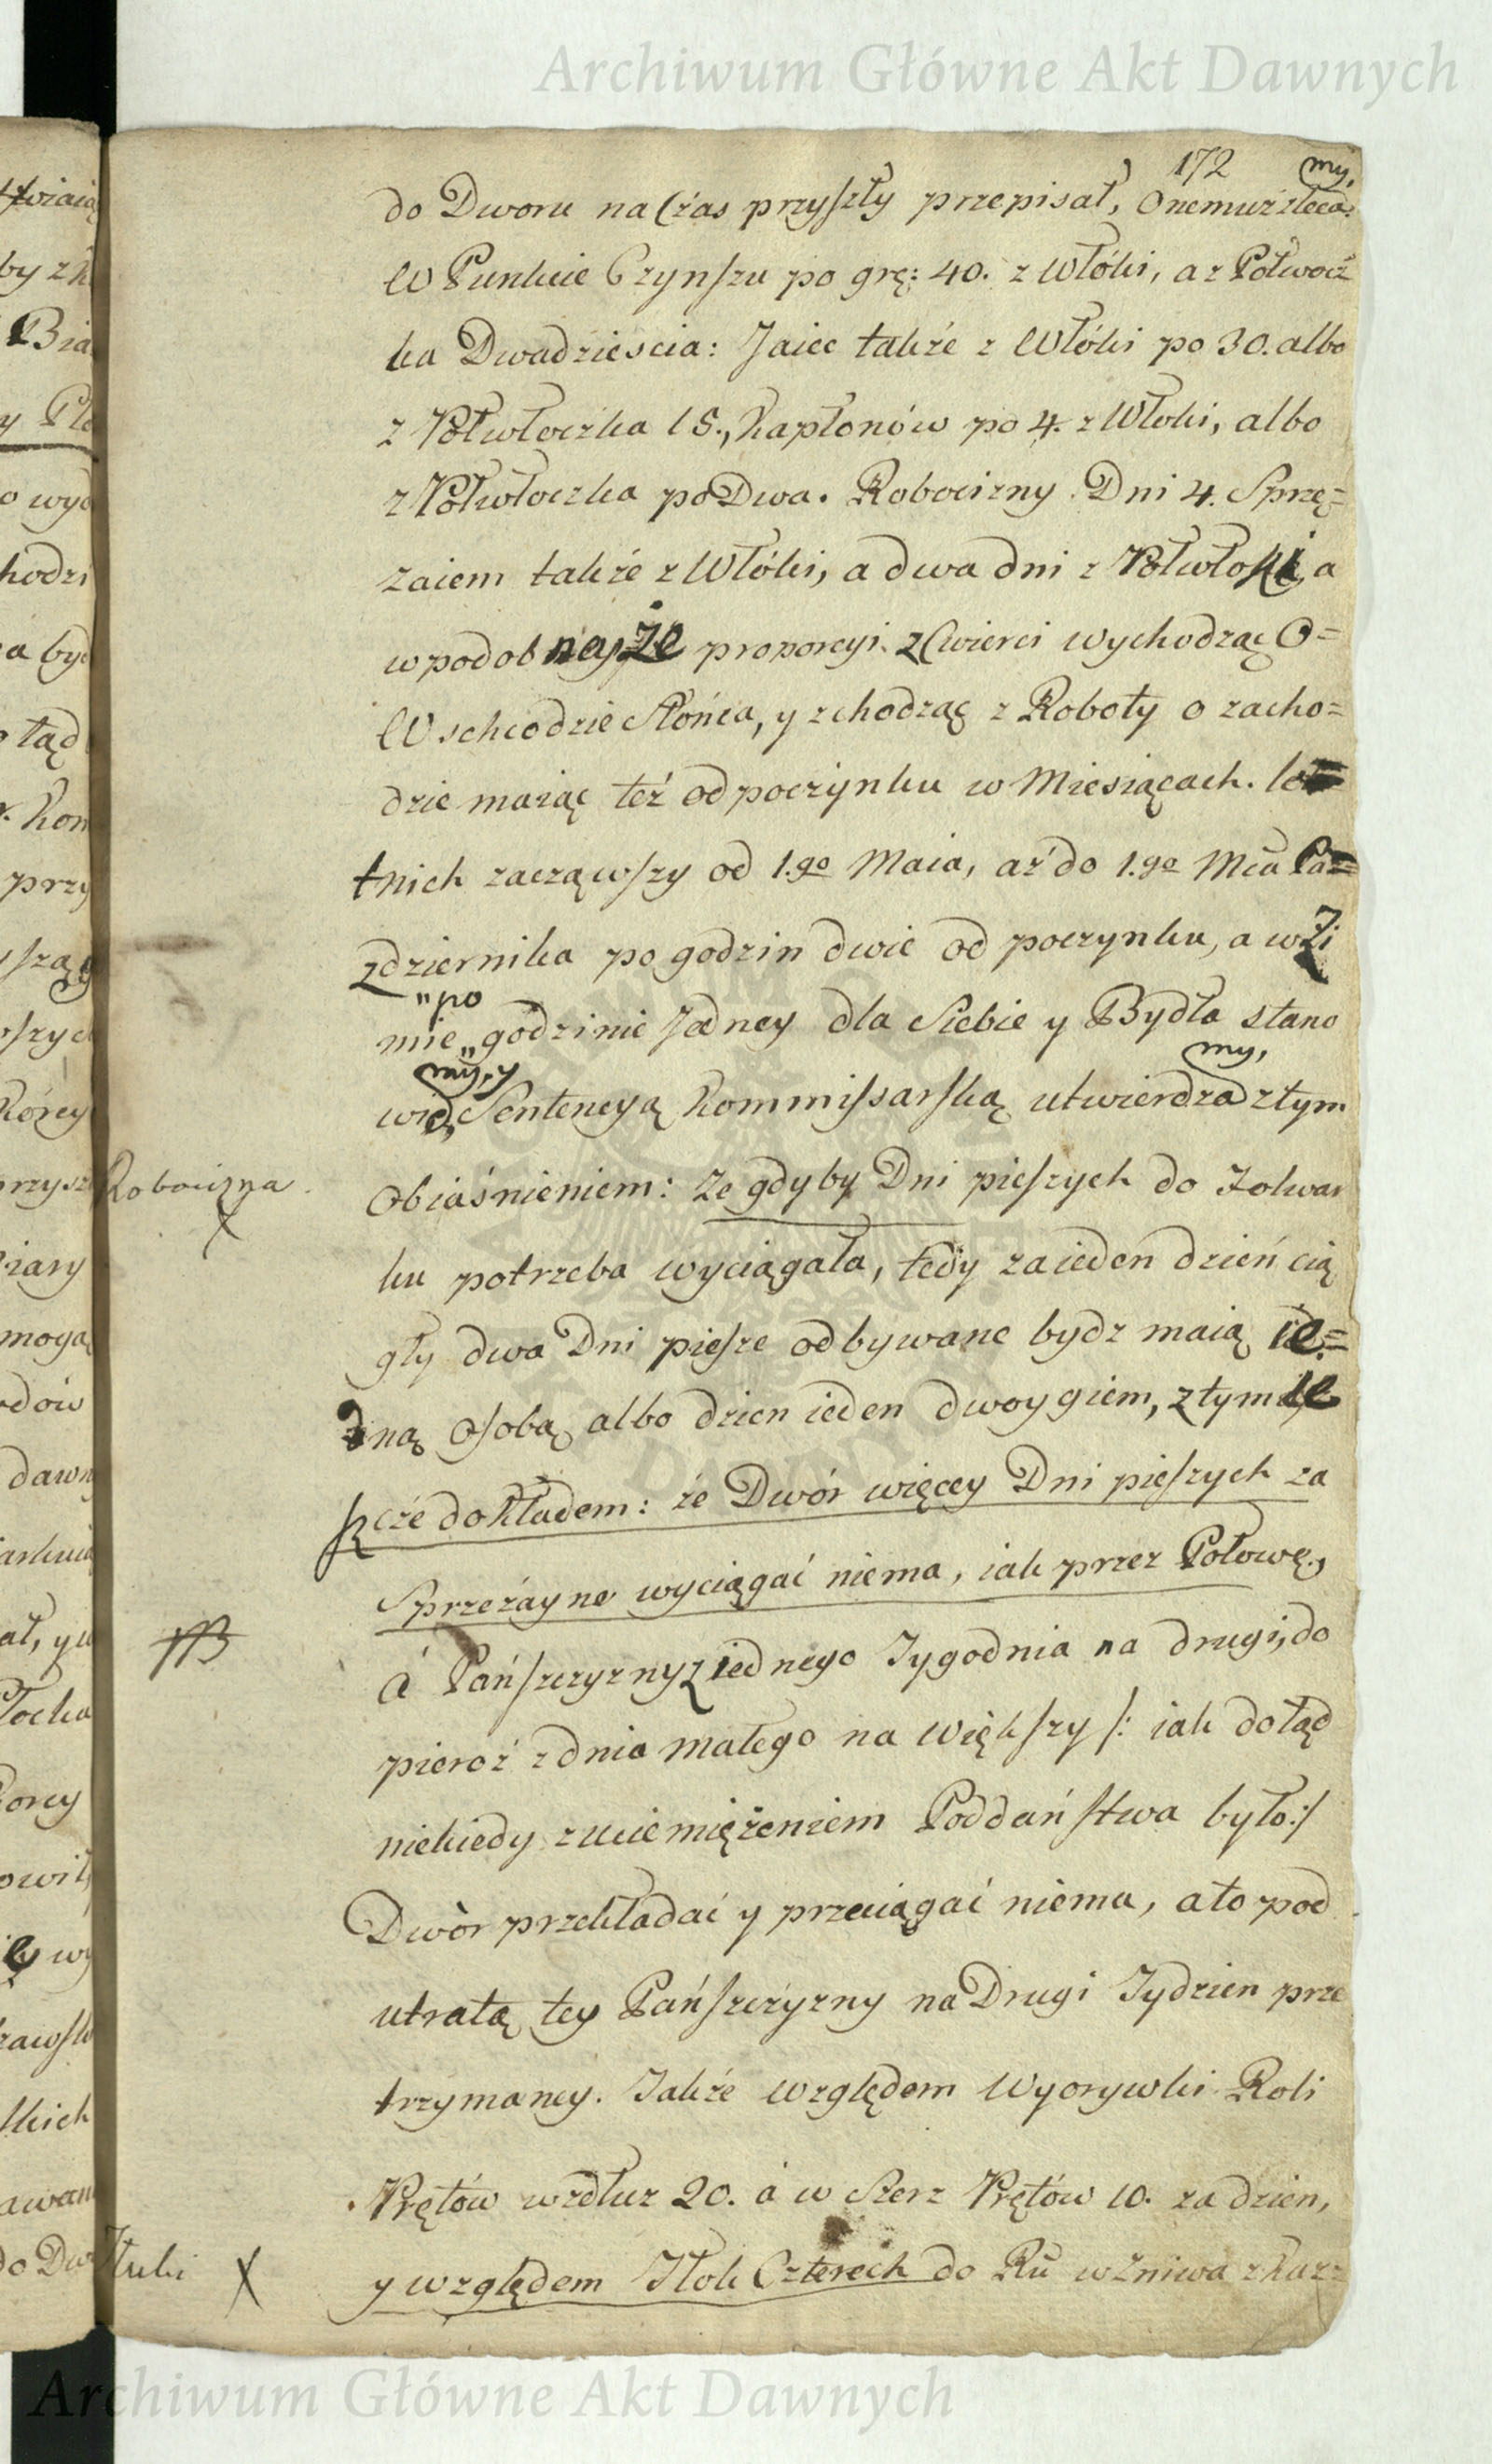 Archiwum Główne Akt Dawnych
172
do Dworu na Czas przyszły przepisał, Onemuż zleca my,
W Punkcie Czynszu po grę: 40. z Włóki, a z Połwocż
ka Dwadziescia: Jaiec także z Włóki po 30. albo
z Połwłoczka 15., Kapłonów po 4. z Włoki, albo
z Połwłoczka po Dwa. Robocizny Dni 4. Sprzę=
żaiem także z Włóki, a dwa dni z Połwłoki, a
w podobneyże proporcyi z Cwierci wychodząc O=
Wschodzie Słońca, y zchodząc z Roboty o zacho=
dzie maiąc też odpoczynku w Miesiącach. let=
tnich zacząwszy od 1.go Maia, aż do 1.go Mca Paź=
dziernika po godzin dwie od poczynku, a w Zi
mie „po godzinie Jedney dla Siebie y Bydła stano
wie my, y Sentencyą Kommissarską utwierdza my, z tym
Robocizna X
Obiaśnieniem: że gdyby Dni pieszych do Folwar
ku potrzeba wyciągała, tedy za ieden dzień cią
gły dwa Dni piesze odbywane bydz maią ie=
dną Osobą albo dzien ieden dwoygiem, z tym ie
szcże dokładem: że Dwór więcey Dni pieszych za
Sprzężayne wyciągać niema, iak przez Połowę,
á Pańszczyzny z iednego Tygodnia na drugi, do
pieroż z dnia małego na większy /: iak dotąd
niekiedy z uciemiężeniem Poddaństwa było :/
Dwòr przekładać y przeciągać niema, a to pod
utratą tey Pańszczyzny na Drugi Tydzien prze
trzymaney. Także względem Wyorywki Roli
Prętów wzdłuz 20. á w Szerz Prętów 10. za dzien,
Tłuki X
y względem Tłok Czterech do Rũ w Żniwa z każ
Archiwum Główne Akt Dawnych